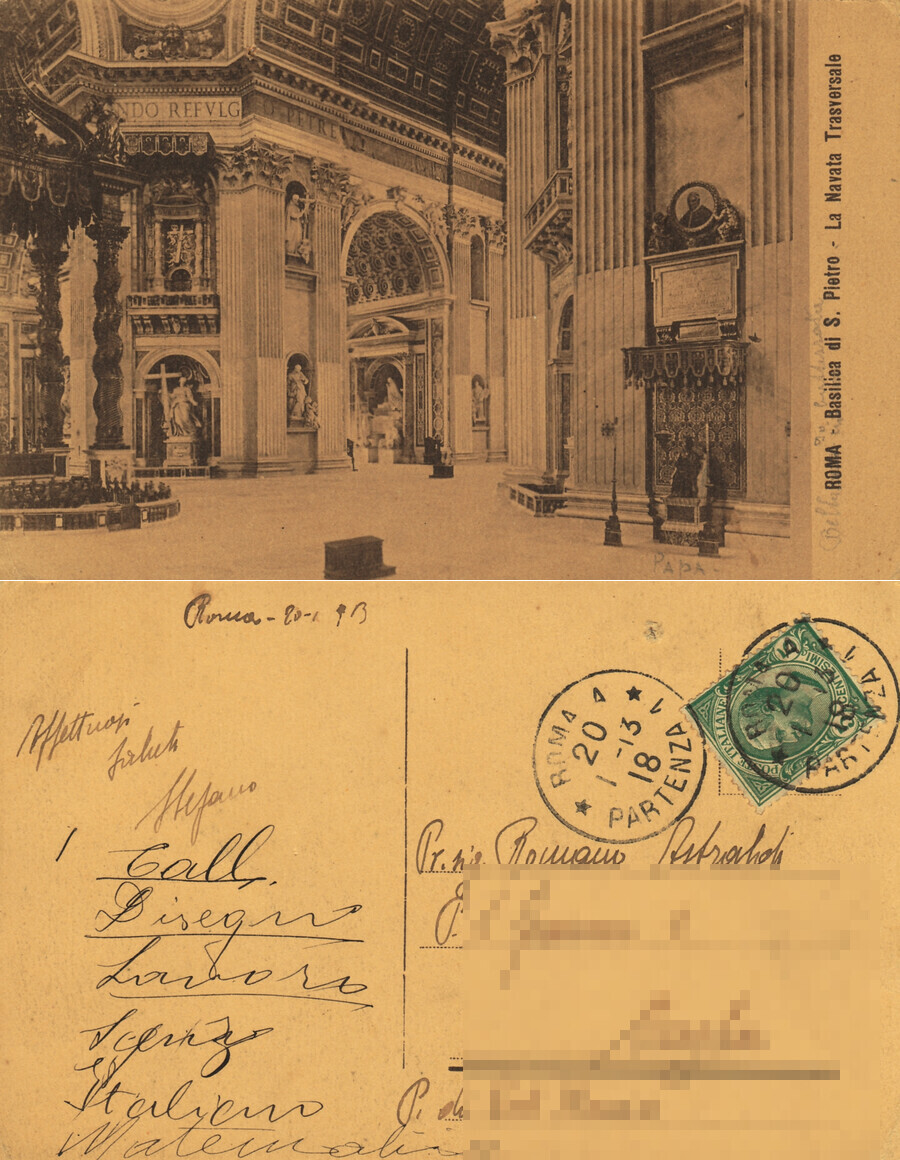 NDO REFVLG
PETRE
ROMA - Basilica di S. Pietro - La Navata Trasversale
Bella
PAPA
Roma - 20-1 913
Affettuosi
saluti
Stefano
Call.
Disegno
Lavoro
Scienz
Italiano
Matematic
ROMA A
20
1 -13
18
PARTENZA 1
POSTE ITALIANE
CENTESIMI
20
PARTENZA 1
Romano Astraldi
P.
P. di